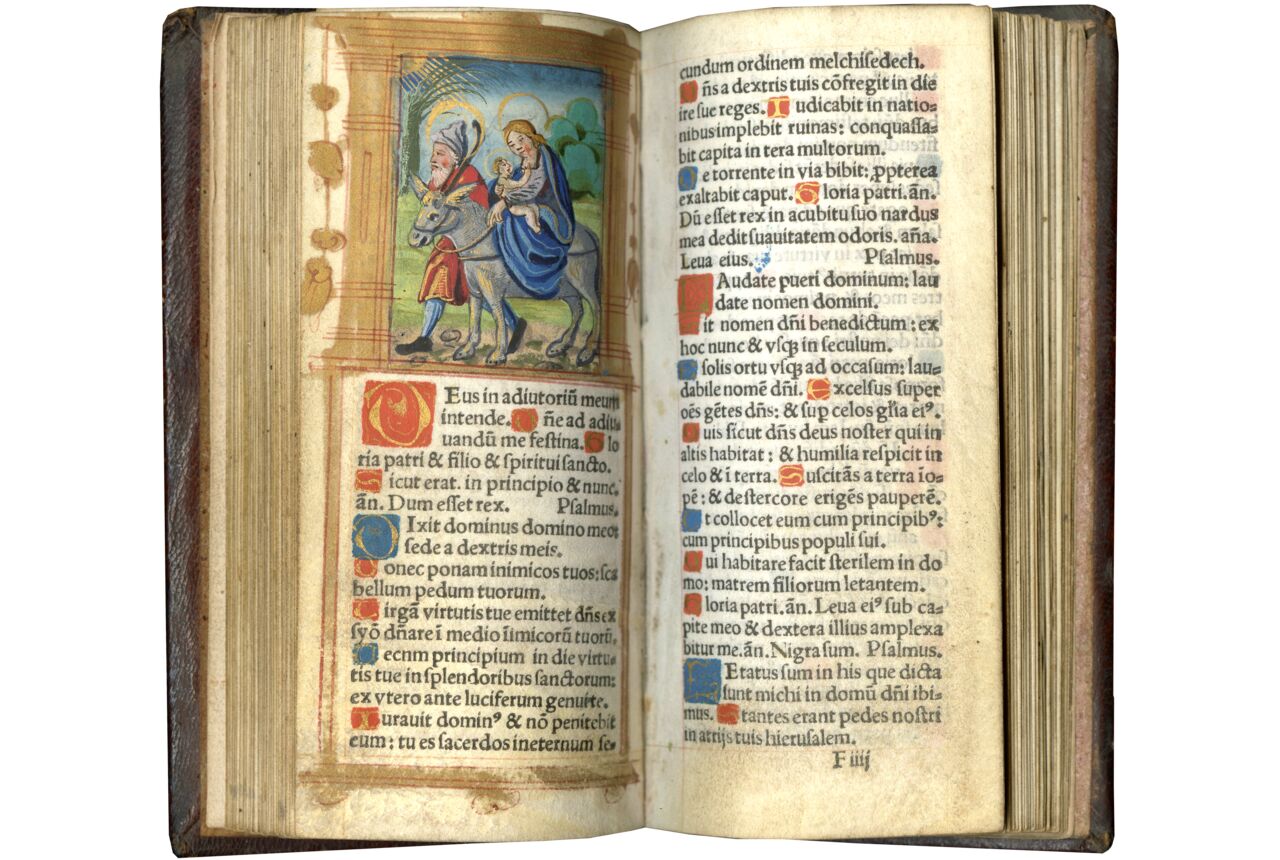 DEus in adiutoriũ meum
intende. Dñe ad adiu-
uandũ me festina. Glo
ria patri & filio & spiritui sancto.
Sicut erat. in principio & nunc.
añ. Dum esset rex. Psalmus.
DIxit dominus domino meo:
sede a dextris meis.
Donec ponam inimicos tuos: sca
bellum pedum tuorum.
Virgã virtutis tue emittet dñs ex
syõ dñare ĩ medio ĩimicorũ tuorũ.
Tecnm principium in die virtu-
tis tue in splendoribus sanctorum:
ex vtero ante luciferum genui te.
Iurauit dominꝰ & nõ penitebit
eum: tu es sacerdos in eternum se-
cundum ordinem melchisedech.
Dñs a dextris tuis cõfregit in die
ire sue reges. Iudicabit in natio-
nibus implebit ruinas: conquassa-
bit capita in tera multorum.
De torrente in via bibit: ꝓpterea
exaltabit caput. Gloria patri. añ.
Dũ esset rex in acubitu suo nardus
mea dedit suauitatem odoris. aña.
Leua eius. Psalmus.
LAudate pueri dominum: lau
date nomen domini.
Sit nomen dñi benedictum: ex
hoc nunc & vsqꝫ in seculum.
A solis ortu vsqꝫ ad occasum: lau-
dabile nomẽ dñi. Excelsus super
oẽs gẽtes dñs: & sup celos glĩa eiꝰ.
Quis sicut dñs deus noster qui in
altis habitat: & humilia respicit in
celo & ĩ terra. Suscitãs a terra ĩo-
pẽ: & de stercore erigẽs pauperẽ.
Ut collocet eum cum principibꝰ:
cum principibus populi sui.
Qui habitare facit sterilem in do
mo: matrem filiorum letantem.
Gloria patri. añ. Leua eiꝰ sub ca-
pite meo & dextera illius amplexa
bitur me. añ. Nigra sum. Psalmus.
LEtatus sum in his que dicta
sunt michi in domũ dñi ibi-
mus. Stantes erant pedes nostri
in atrijs tuis hierusalem.
F iiij